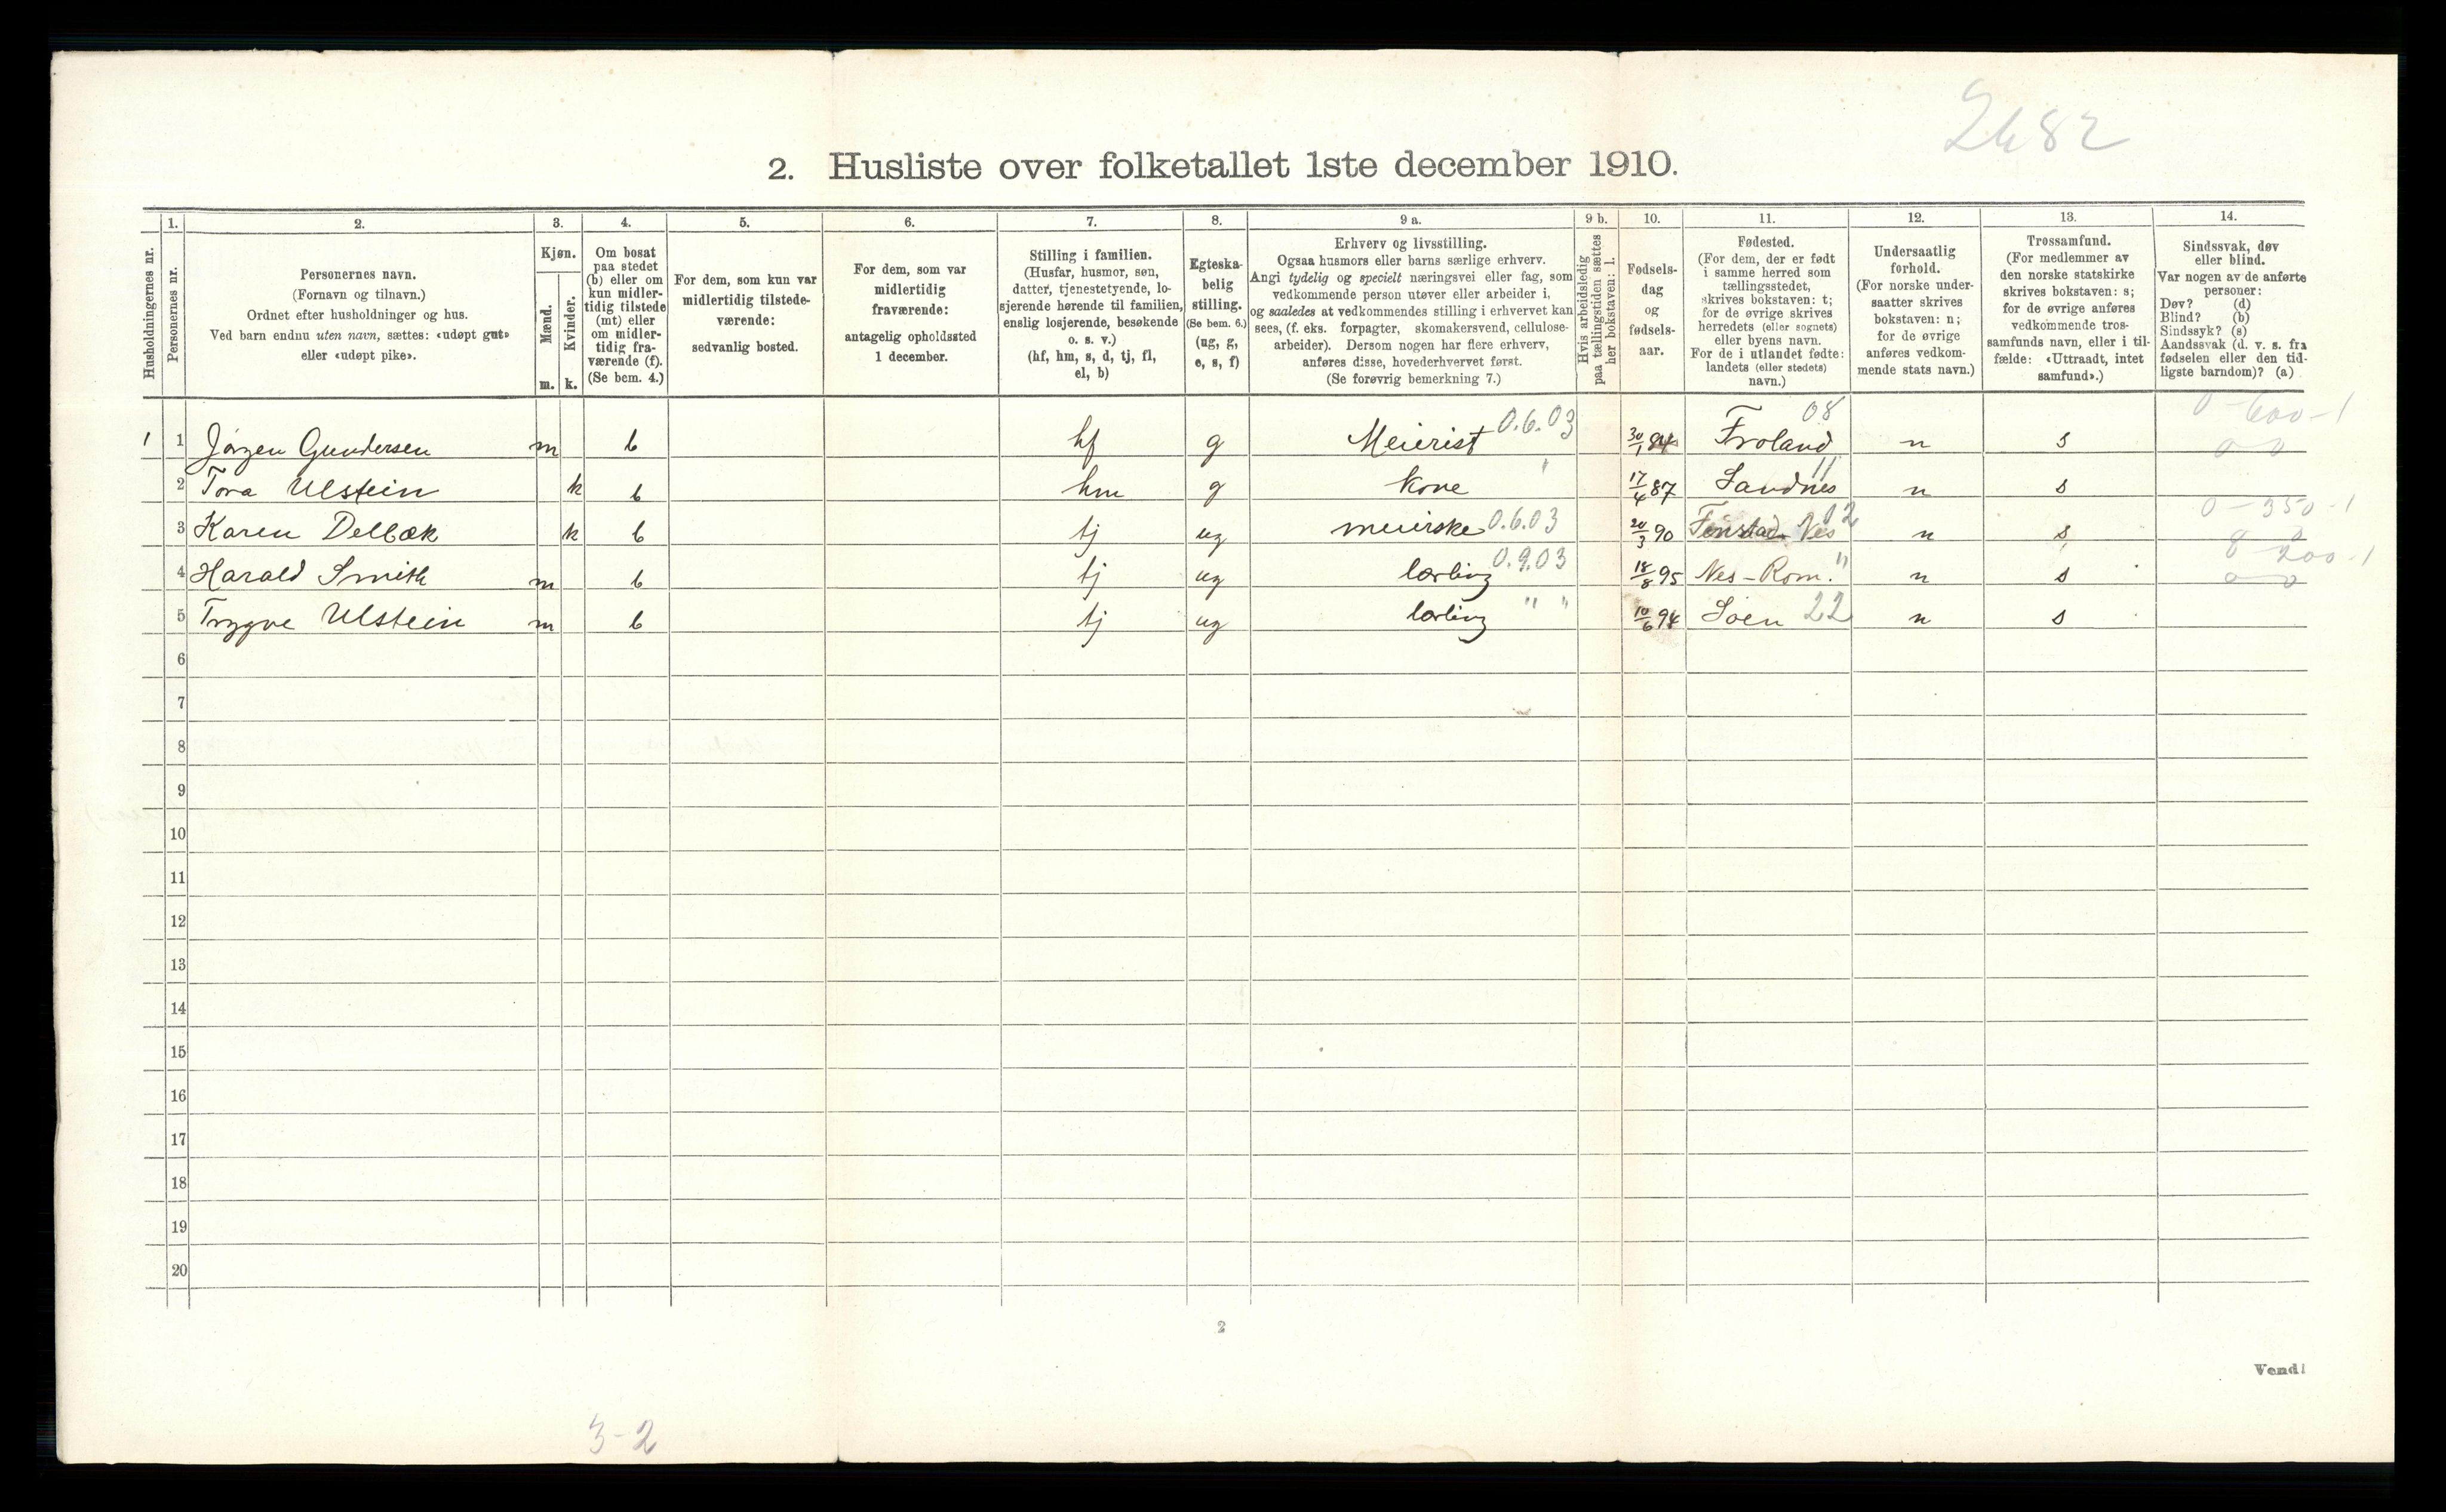 2682
2. Husliste over folketallet 1ste december 1910.
1. 2. 3. 4. 5. 6. 7. 8. 9 a. 9 b. 10. 11. 12. 13. 14.
Husholdningernes nr.
Personernes nr.
Personernes navn.
(Fornavn og tilnavn.)
Ordnet efter husholdninger og hus.
Ved barn endnu uten navn, sættes: «udøpt gut»
eller «udøpt pike».
Kjøn.
Mænd.
m.
Kvinder.
k.
Om bosat
paa stedet
(b) eller om
kun midler-
tidig tilstede
(mt) eller
om midler-
tidig fra-
værende (f).
(Se bem. 4.)
For dem, som kun var
midlertidig tilstede-
værende:
sedvanlig bosted.
For dem, som var
midlertidig
fraværende:
antagelig opholdssted
1 december.
Stilling i familien.
(Husfar, husmor, søn,
datter, tjenestetyende, lo-
sjerende hørende til familien,
enslig losjerende, besøkende
o. s. v.)
(hf, hm, s, d, tj, fl,
el, b)
Egteska-
belig
stilling.
(Se bem. 6.)
(ug, g,
e, s, f)
Erhverv og livsstilling.
Ogsaa husmors eller barns særlige erhverv.
Angi tydelig og specielt næringsvei eller fag, som
vedkommende person utøver eller arbeider i,
og saaledes at vedkommendes stilling i erhvervet kan
sees, (f. eks. forpagter, skomakersvend, cellulose-
arbeider). Dersom nogen har flere erhverv,
anføres disse, hovederhvervet først.
(Se forøvrig bemerkning 7.)
Hvis arbeidsledig
paa tællingstiden sættes
her bokstaven: l.
Fødsels-
dag
og
fødsels-
aar.
Fødested.
(For dem, der er født
i samme herred som
tællingsstedet,
skrives bokstaven: t;
for de øvrige skrives
herredets (eller sognets)
eller byens navn.
For de i utlandet fødte:
landets (eller stedets)
navn.)
Undersaatlig
forhold.
(For norske under-
saatter skrives
bokstaven: n;
for de øvrige
anføres vedkom-
mende stats navn.)
Trossamfund.
(For medlemmer av
den norske statskirke
skrives bokstaven: s;
for de øvrige anføres
vedkommende tros-
samfunds navn, eller i til-
fælde: «Uttraadt, intet
samfund».)
Sindssvak, døv
eller blind.
Var nogen av de anførte
personer:
Døv? (d)
Blind? (b)
Sindssyk? (s)
Aandssvak (d. v. s. fra
fødselen eller den tid-
ligste barndom)? (a)
1 1 Jørgen Gundersen m b hf g Meierist 0.6.03 30/1 84 Froland 08 n s 0-600-1 0 0
2 Tora Ulstein k b hm g Kone " 17/4 87 Sandnes 11 n s
3 Karen Delbæk k b tj ug meierske 0.6.03 20/3 90 Nes 02 n s 0-350-1 8 0
4 Harald Smith m b tj ug lærling 0.9.03 18/8 95 Nes-Rom. " n s 200-1 0 0
5 Trygve Ulstein m b tj ug lærling " " 10/6 94 Soen 22 n s
6
7
8
9
10
11
12
13
14
15
16
17
18
19
20
2
Vend!
3-2